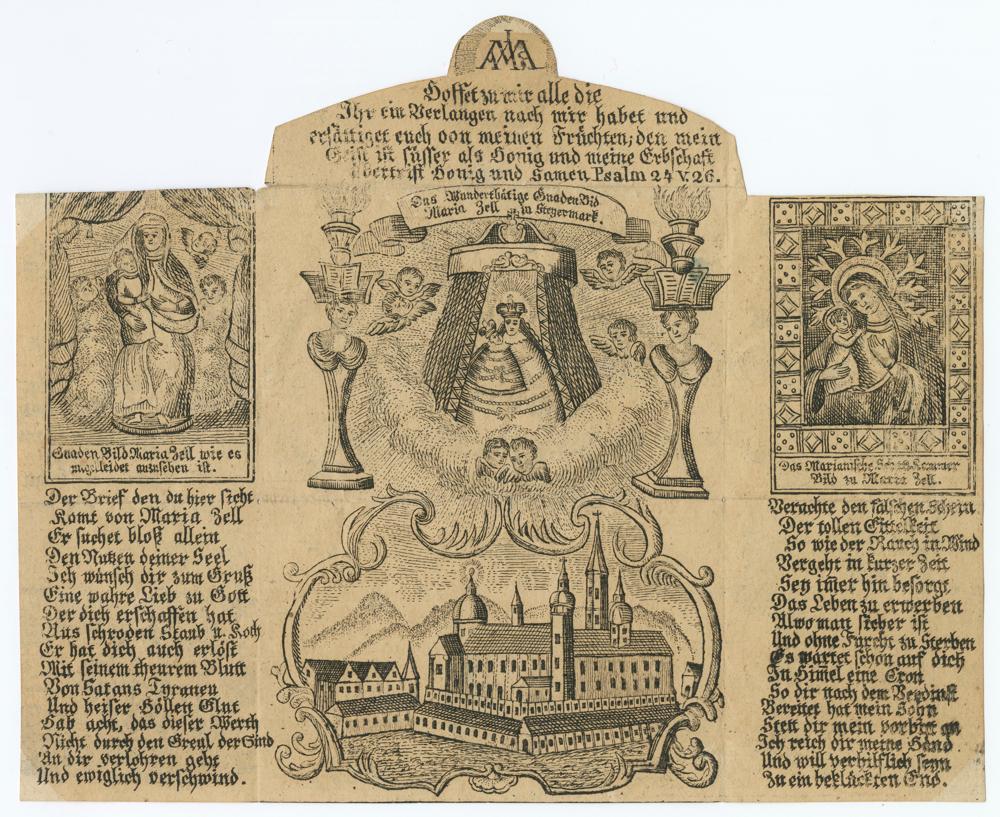 Hoffet zu mir alle die
Ihr ein Verlangen nach mir habet und
ersättiget euch von meinen Früchten; den mein
Geist ist süsser als Honig und meine Erbschaft
übertrift Honig und Samen Psalm 24 V. 26.
Das Wunderthätige Gnaden Bild
Maria Zell in Steyermark.
Gnaden Bild Maria Zell wie es
angekleidet anzusehen ist.
Der Brief den du hier sieht
Kamt von Maria Zell
Er suchet bloß allein
Den Nutzen deiner Seel
Ich wünsch dir zum Gruß
Eine wahre Lieb zu Gott
Der dich erschaffen hat
Aus schroden Staub u. Koth
Er hat dich auch erlöst
Mit seinem theurem Blutt
Von Satans Tyraney
Und heiser Höllen Glut
Gab acht, das dieser Werth
Nicht durch den Greul der Sind
An dir verlohren geht
Und ewiglich verschwind.
Das Marianische Schatz Kammer
Bild zu Maria Zell.
Verachte den falschen Schein
Der tollen Eittelkeit
So wie der Rauch in Wind
Vergeht in kurzer Zeit
Sey imer hin besorgt
Das Leben zu erwerben
Alwo man sicher ist
Und ohne Furcht zu Sterben
Es wartet schon auf dich
In Himel eine Cron
So dir nach dem Verdinst
Bereitet hat mein Sohn
Stell dir mein vorbitt an
Ich reich dir meine Hand
Und will verhilflich seyn
Zu ein beklückten End.